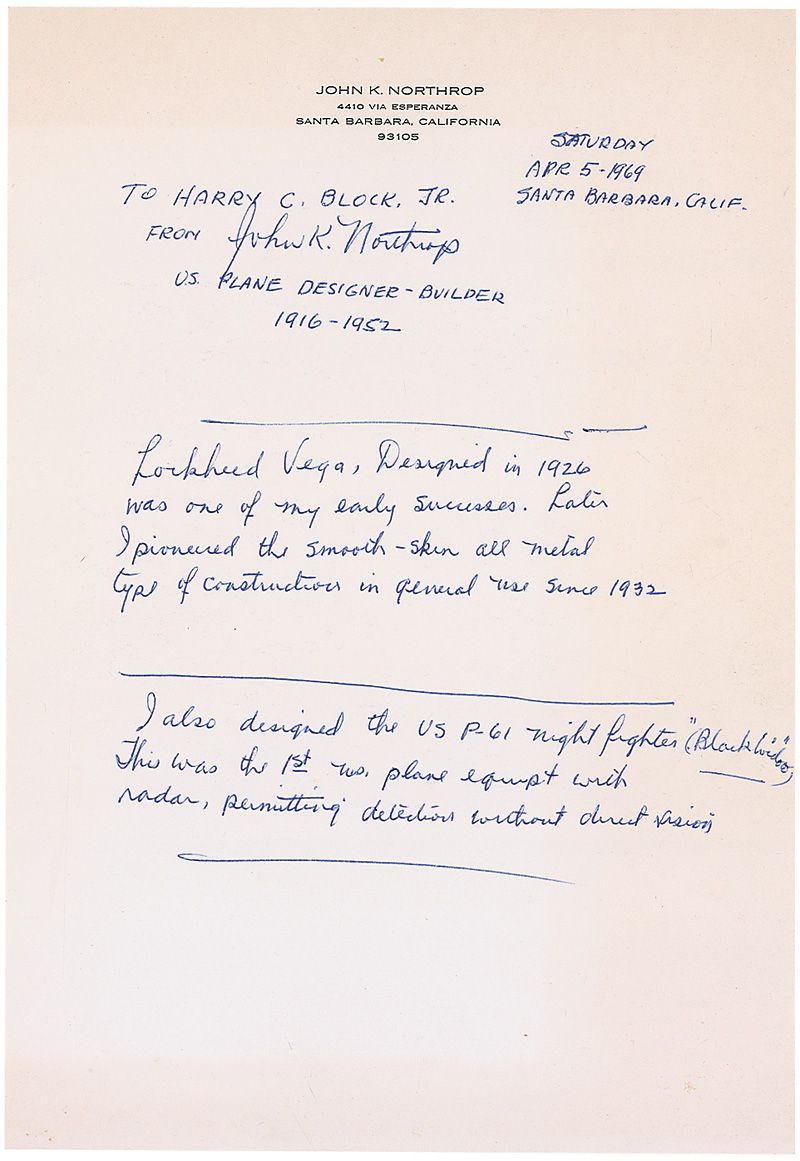 JOHN K. NORTHROP
4410 VIA ESPERANZA
SANTA BARBARA, CALIFORNIA
93105
SATURDAY
APR 5-1969
SANTA BARBARA, CALIF.
TO HARRY C. BLOCK, JR.
FROM John K. Northrop
U.S. PLANE DESIGNER-BUILDER
1916-1952
Lockheed Vega, Designed in 1926
was one of my early successes. Later
I pioneered the smooth-skin all metal
type of construction in general use since 1932
I also designed the US P-61 night fighter ("Black Widow")
This was the 1st U.S. plane equipt with
radar, permitting detection without direct vision